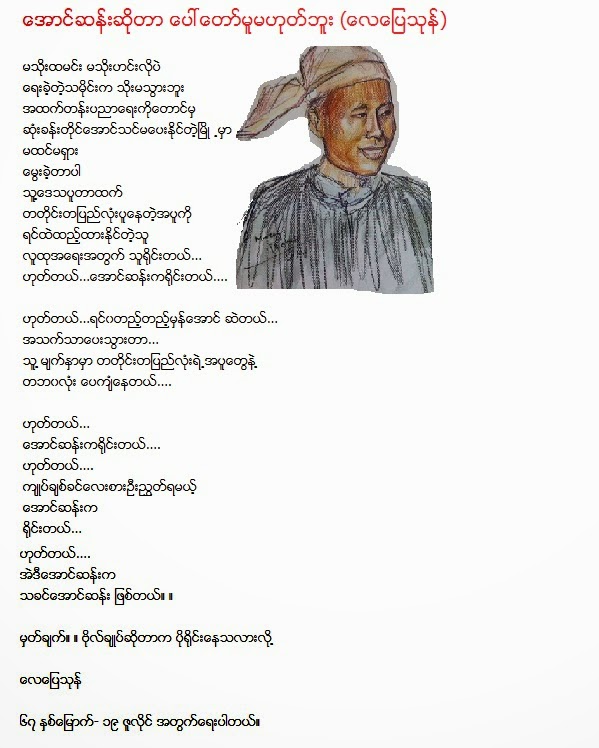 အောင်ဆန်းဆိုတာ ပေါ်တော်မူမဟုတ်ဘူး (လေပြေသုန်)
မသိုးထမင်း မသိုးဟင်းလိုပဲ
ရေးခဲ့တဲ့သမိုင်းက သိုးမသွားဘူး
အထက်တန်းပညာရေးကိုတောင်မှ
ဆုံးခန်းတိုင်အောင်သင်မပေးနိုင်တဲ့မြို့မှာ
မထင်မရှား
မွေးခဲ့တာပါ
သူ့ဒေသပူတာထက်
တတိုင်းတပြည်လုံးပူနေတဲ့အပူကို
ရင်ထဲထည့်ထားနိုင်တဲ့သူ
လူထုအရေးအတွက် သူရိုင်းတယ်...
ဟုတ်တယ်...အောင်ဆန်းကရိုင်းတယ်....
ဟုတ်တယ်...ရင်ဝတည့်တည့်မှန်အောင် ဆဲတယ်...
အသက်သာပေးသွားတာ...
သူ့မျက်နှာမှာ တတိုင်းတပြည်လုံးရဲ့အပူတွေနဲ့
တဘဝလုံး ပေကျံနေတယ်....
ဟုတ်တယ်...
အောင်ဆန်းကရိုင်းတယ်....
ဟုတ်တယ်....
ကျုပ်ချစ်ခင်လေးစားဦးညွှတ်ရမယ့်
အောင်ဆန်းက
ရိုင်းတယ်...
ဟုတ်တယ်....
အဲဒီအောင်ဆန်းက
သခင်အောင်ဆန်း ဖြစ်တယ်။ ။
မှတ်ချက်။ ။ ဗိုလ်ချုပ်ဆိုတာက ပိုရိုင်းနေသလားလို့
လေပြေသုန်
၆၇ နှစ်မြောက်- ၁၉ ဇူလိုင် အတွက်ရေးပါတယ်။